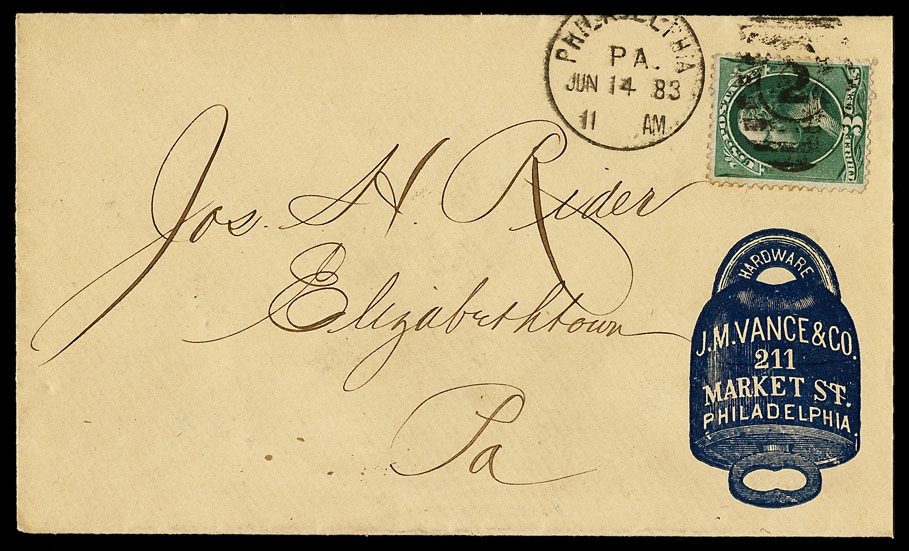 PHILADELPHIA
PA.
JUN 14 83
11 AM
2
U.S. POSTAGE
THREE 3 CENTS
Jos. H. Rider
Elizabethtown
Pa
HARDWARE
J.M. VANCE & CO.
211
MARKET ST.
PHILADELPHIA.